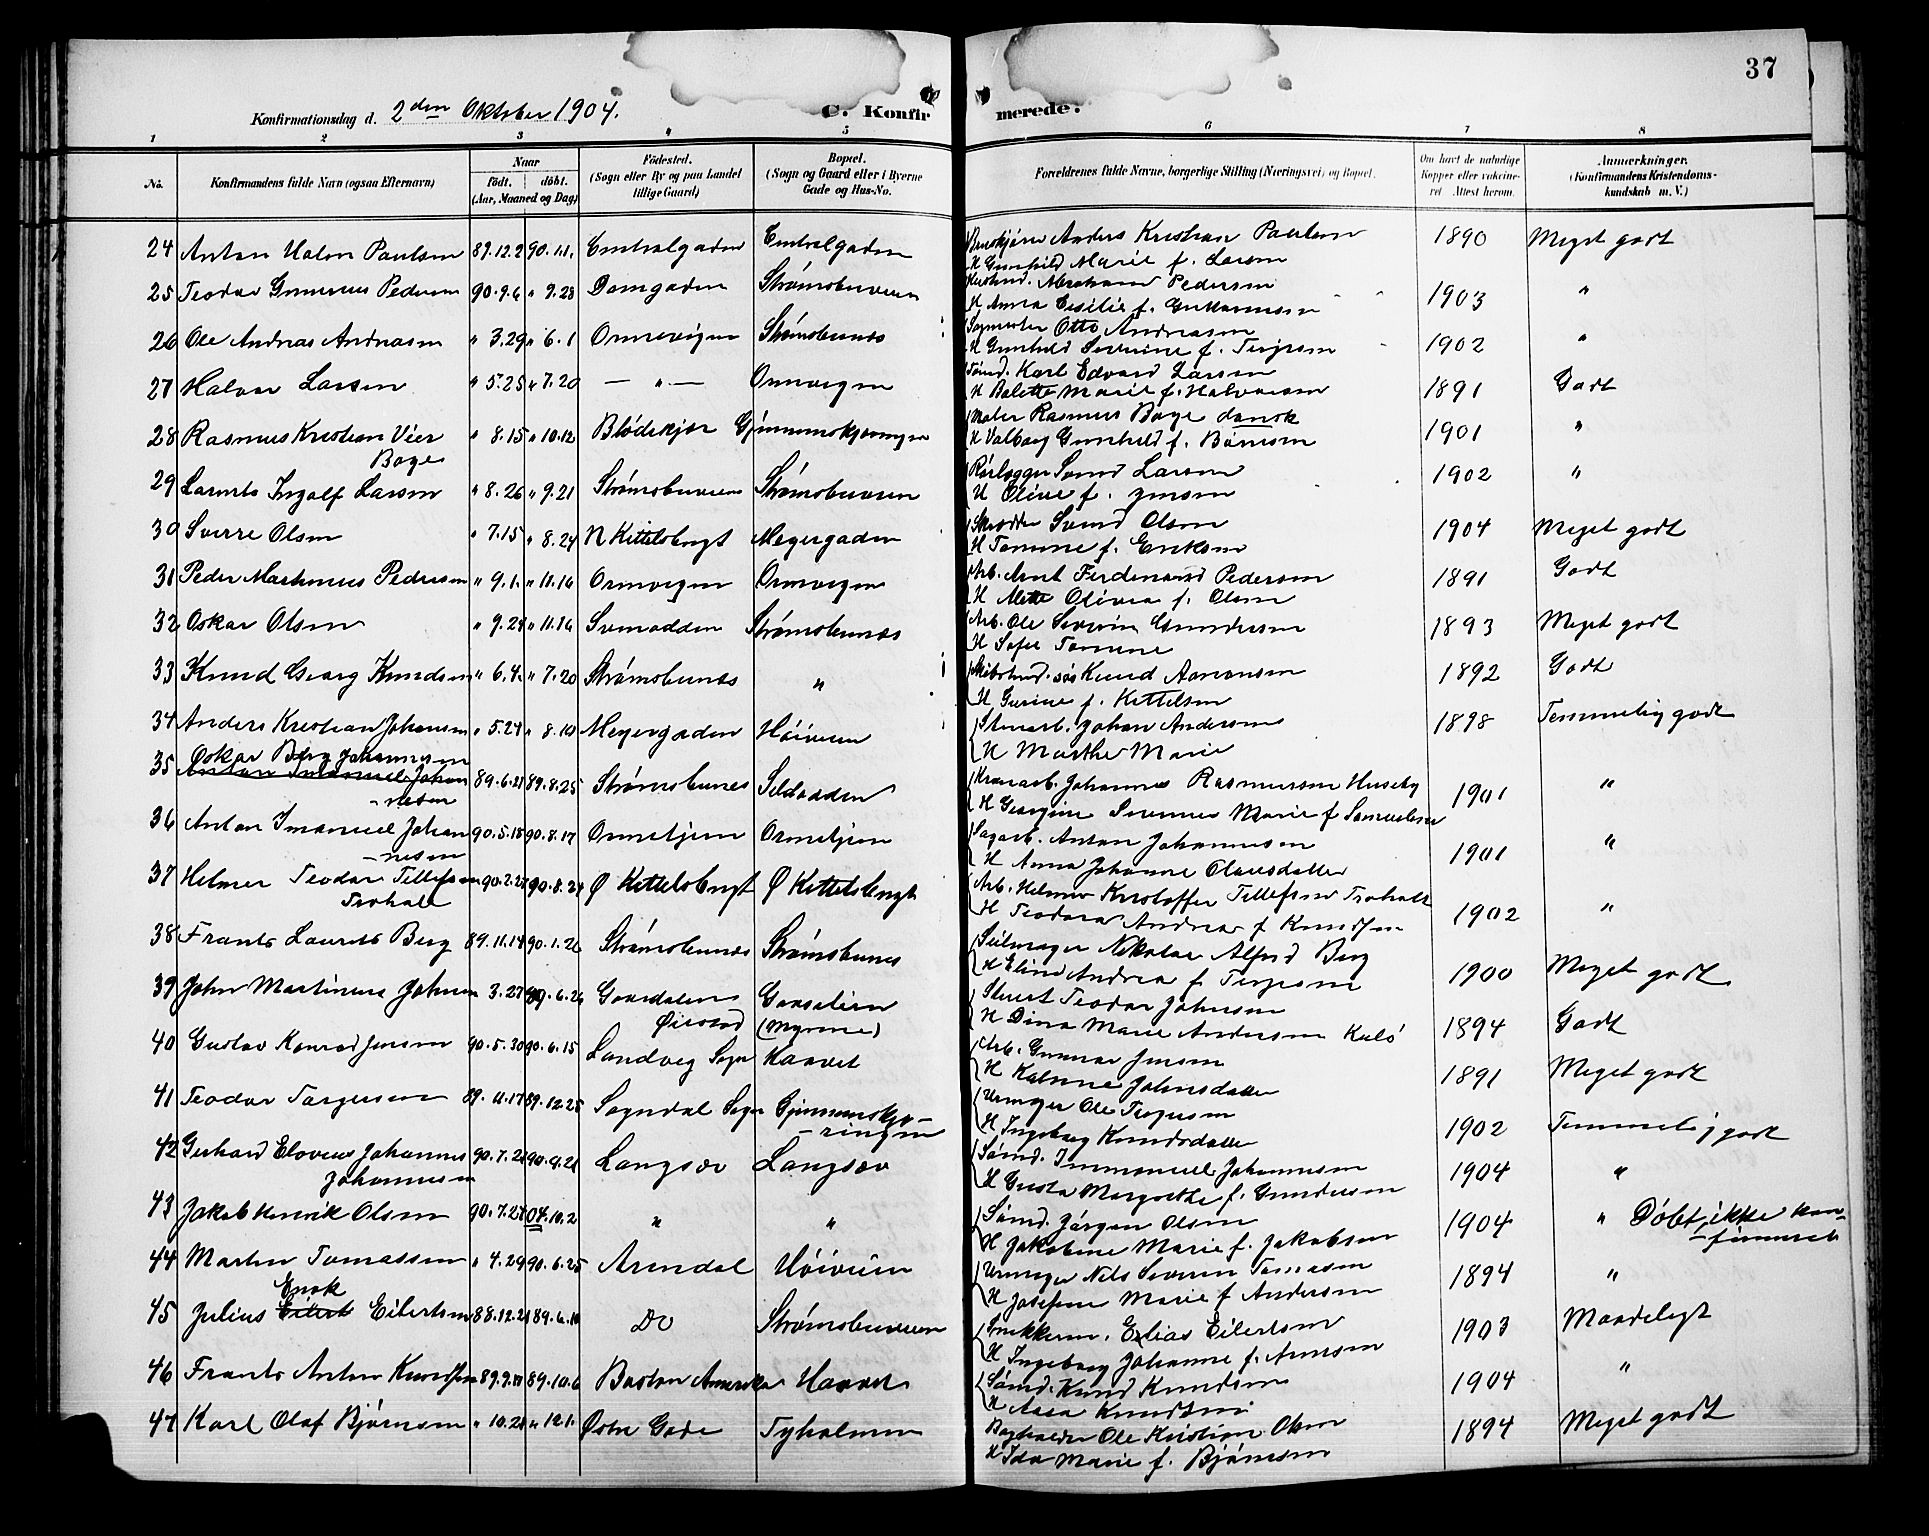 37
Konfirmationsdag d. 2den Oktober 1904. C. Konfir merede.
1 2 3 4 5 6 7 8
No. Konfirmandens fulde Navn (ogsaa Efternavn) Naar födt. döbt. (Aar, Maaned og Dag) Födested. (Sogn eller By og paa Landet tillige Gaard) Bopæl. (Sogn og Gaard eller i Byerne Gade og Hus-No. Forældrenes fulde Navne, borgerlige Stilling (Næringsvei) og Bopæl. Om havt de naturlige Kopper eller vaccineret. Attest herom. Anmærkninger. (Konfirmandens Kristendomskundskab m. V.)
24 Anton Paulsen 89.12.2 90.1.1. Centralgaden Centralgaden Anders Kristian Paulsen 1890 Meget godt
H Gunhild Marie f. Larsen
25 Teodor Pedersen 90.9.6 " 9.28 Domgaden Strømsbuveien Abraham Pedersen 1903 "
H Anna Cesilie f. Guttormsen
26 Ole Andreas Andreasen " 3.29 " 6.1 Ormevigen Strømsbunes Otto Andreasen 1902 "
H Gunhild Severine f. Terjesen
27 Halvor Larsen " 5.25 " 7.20 — " — Ormvigen Tømd. Karl Edvard Larsen 1891 Godt
H Bolette Marie f. Halvorsen
28 Rasmus Kristian Vier " 8.15 " 10.12 Blødekjær Maler Rasmus Boye dansk 1901 "
Boye H Valborg Gunhild f. Børresen
29 Laurits Ingolf Larsen " 8.26 " 9.21 Strømsbuveien Strømsbuveien Rørlægger Svend Larsen 1902 "
H Olive f. Jensen
30 Sverre Olsen " 7.15 " 8.24 N Kittelsbugt Meyergaden Skrædder Svend Olsen 1904 Meget godt
H Tomine f. Eriksen
31 Peder Mathinus Pedersen " 9.1. " 11.16 Ormvigen Ormvigen Arb. Arnt Ferdinand Pedersen 1891 Godt
H Mette Olivia f. Olsen
32 Oskar Olsen " 9.24 " 11.16 Svinodden Strømsbunæs Arb. Ole Severin Gundersen 1893 Meget godt
H Sofie Tomine
33 Knud Georg Knudsen " 6.4. " 7.20 Strømsbunæs " Knud Aanonsen 1892 Godt
H Gurine f. Kittelsen
34 Anders Kristian Johansen " 5.24 " 8.10 Meyergaden Høiveien Stenarb. Johan Andersen 1898 Temmelig godt
H Marthe Marie
Oskar Berg Johannesen
35 Anton Imanuel Johan 89.6.21 89.8.25 Strømsbunes Sildodden Johannes Rasmussen Huseby 1901 "
-nesen H Georgine Severine Marie f Samuelsen
36 Anton Imanuel Johan 90.5.18 90.8.17 Ormetjern Ormetjern Sagarb. Anton Johannesen 1901 "
-nesen H Anna Johanne Olausdatter
37 Helmer Teodor Tellefsen 90.2.27 90.8.24 Ø Kittelsbugt Ø Kittelsbugt Arb. Helmer Kristoffer Tellefsen Froholt 1902 "
Froholt H Teodora Andrea f Knudsen
38 Frants Laurits Berg 89.11.14 90.1.26 Strømsbunæs Strømsbunes Seilmager Nikolai Alfred Berg 1900 Meget godt
H Eline Andrea f Terjesen
39 John Martinius Johnsen 3.27 6.26 Gaasdalen Gaaselien Teodor Johnsen 1894 Godt
Øiestad (Myrene) H Dina Marie Andersen Kulö
40 Gustav Konrad Jensen 90.5.30 90.6.15 Landvig Sogn Haavet Arb. Gunnar Jensen 1891 Meget godt
H Katrine Johnsdatter
41 Teodor Torgersen 89.11.17 89.12.25 Sogndal Sogn Gjennemskjæ- Urmager Ole Torgersen 1902 Temmelig godt
-ringen H Ingeborg Knudsdatter
42 Gerhard Elovius Johannes 90.7.21 90.9.21 Langsæv Langsæv Sømd. Immanuel Johannesen 1904 "
Johannesen H Gusta Margrethe f. Gundersen
43 Jakob Henrik Olsen 90.7.27 04.10.2 " " Sømd. Jørgen Olsen 1904 " Døbt, ikke kon-
H Jakobine Marie f. Jakobsen -firmeret
44 Martin Tomassen " 4.29 90.6.25 Arendal Høiveien Urmager Nils Severin Tomassen 1894 "
H Josefine Marie f Andersen
Enok
45 Julius Eilert Eilertsen 88.12.21 89.6.10 Do Strømsbuveien Elias Eilertsen 1903 Maadeligt
H Ingeborg Johanne f. Arnesen
46 Frants Anton Knudsen 89.9.11 89.10.6 Boston Amerika Haavet Sømd. Knud Knudsen 1904 "
H Aasa Knudsen
47 Karl Olaf Bjørnsen " 10.21 " 12.1. Østre Gade Tyholmen Bogholder Ole Kristian Olsen 1894 Meget godt
H Ida Marie f. Bjørnsen